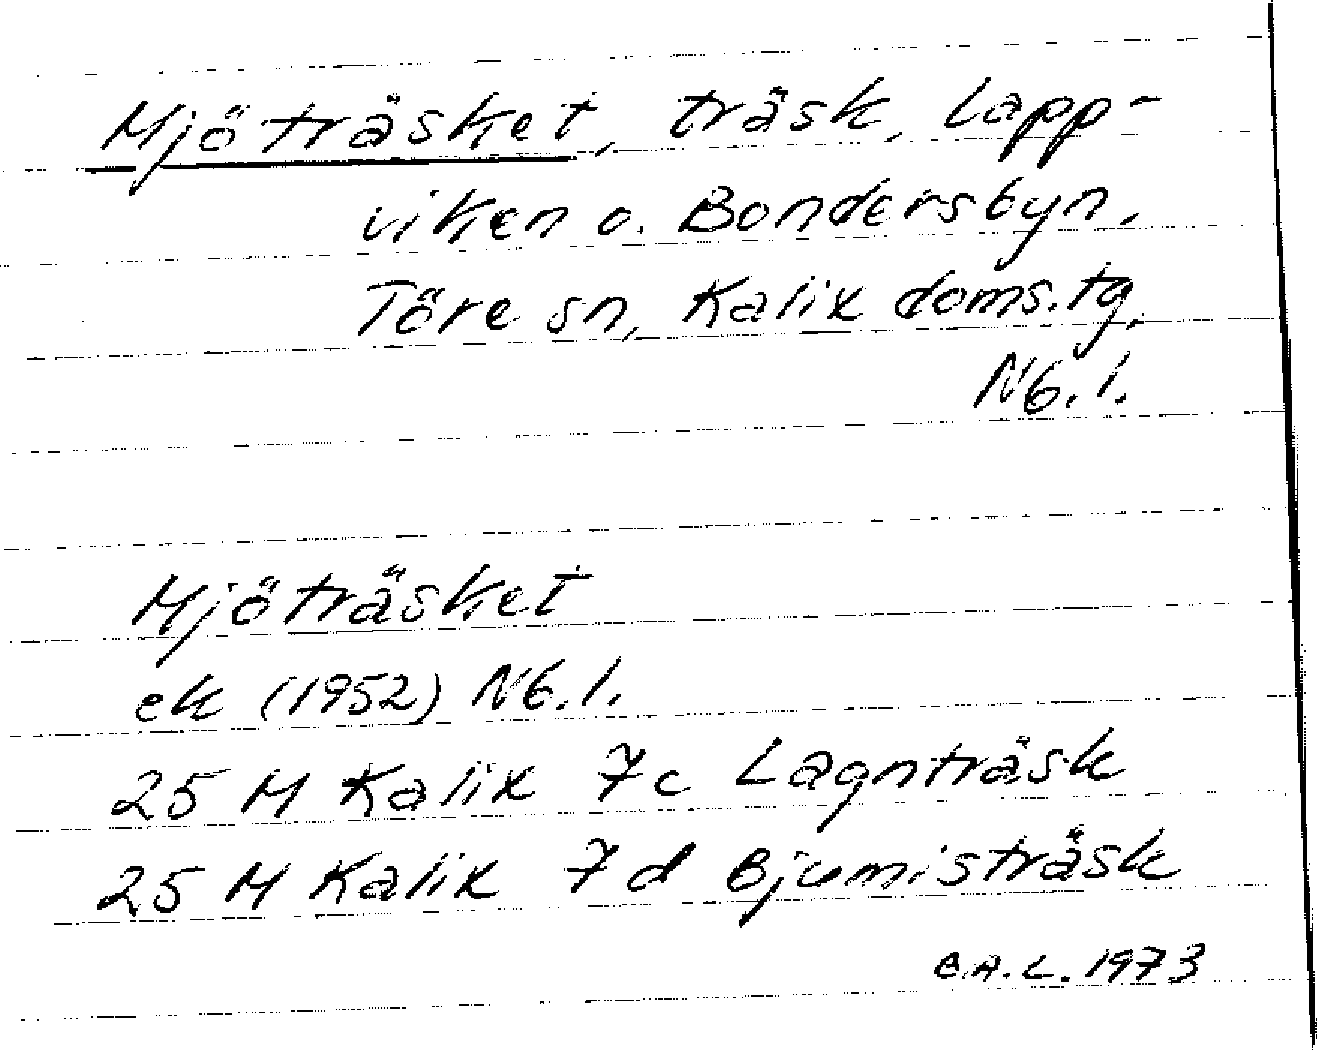 Mjöträsket, träsk, Lapp-
viken o. Bondersbyn,
Töre sn, Kalix doms.tg,
Nb.l.
Mjöträsket
ek (1952) Nb.l.
25 M Kalix 7c Lagnträsk
25 M Kalix 7d Bjumisträsk
B.A.L. 1973